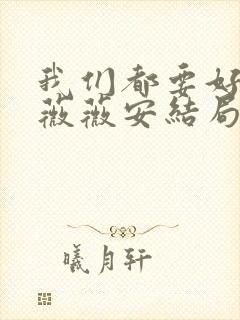 我们都要好
薇薇安结局
曦月轩